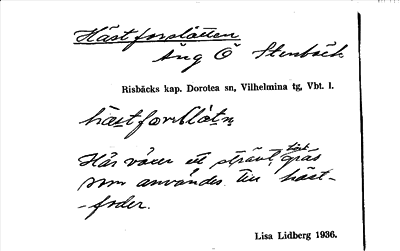 Hästforslåtten
Äng Ö Stenbäck
Risbäcks kap. Dorotea sn, Vilhelmina tg, Vbt. l.
hästforslåtn
Här växer ett strävt, tört gräs
som användes till häst-
-foder.
Lisa Lidberg 1936.